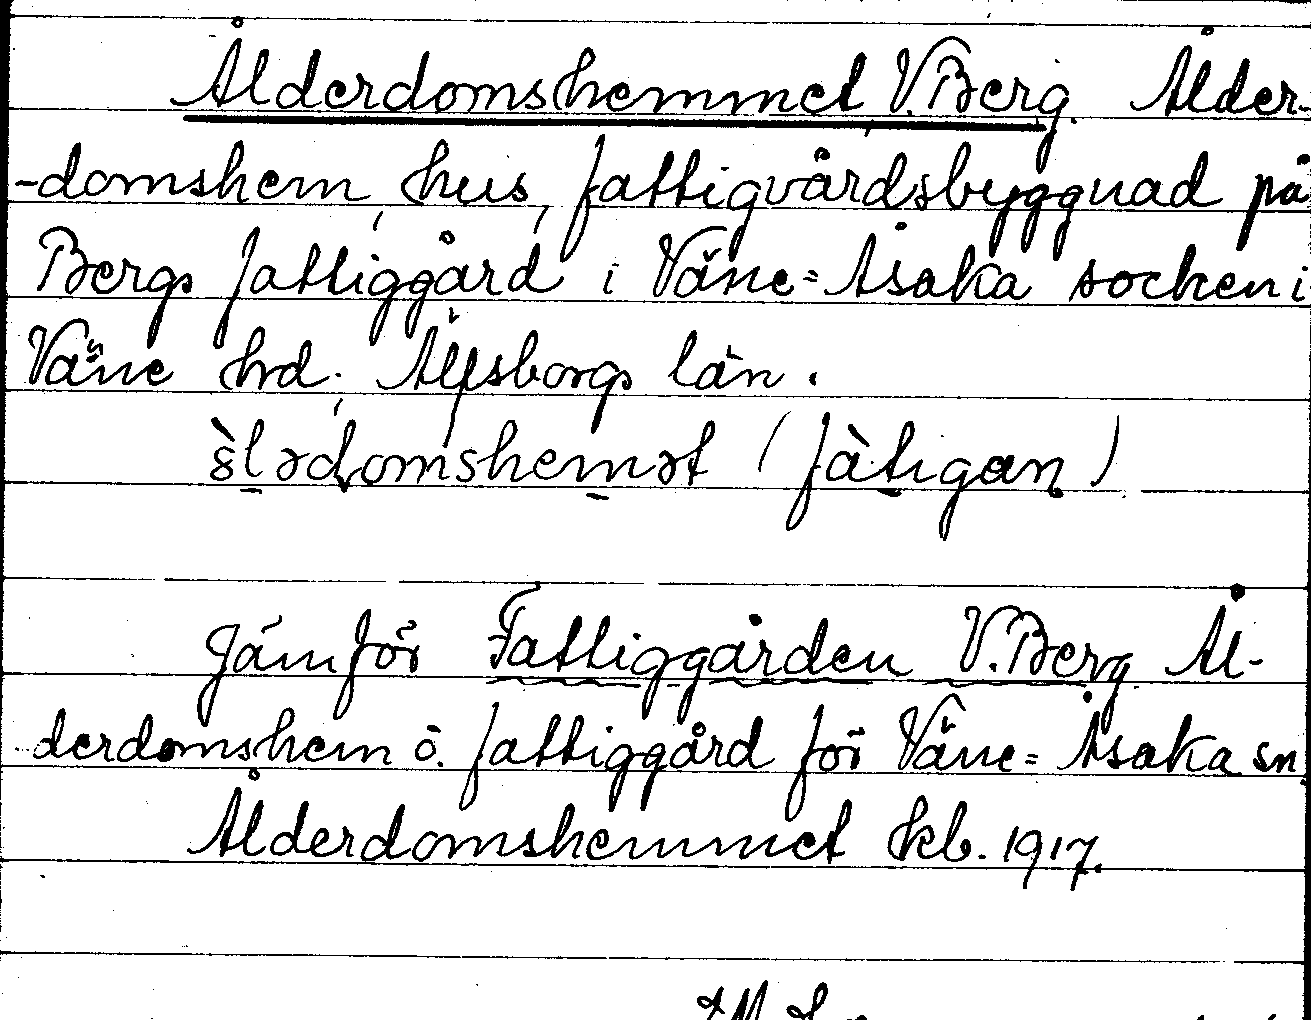 Ålderdomshemmet V. Berg. Ålder-
-domshem, hus, fattigvårdsbyggnad på
Bergs fattiggård i Väne=Åsaka socken i
Väne hrd. Älfsborgs län.
(fàtigan)
Jämför Fattiggården V. Berg Ål-
derdomshem o. fattiggård för Väne=Åsaka sn.
Ålderdomshemmet kb. 1917.